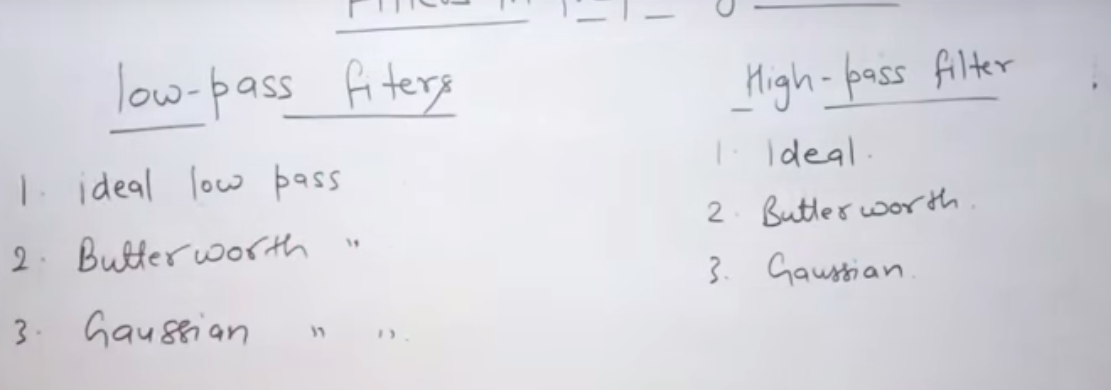 low-pass fiters
1. ideal low pass
2. Butterworth "
3. Gaussian " ".
High-pass filter
1. Ideal.
2. Butterworth.
3. Gaussian.